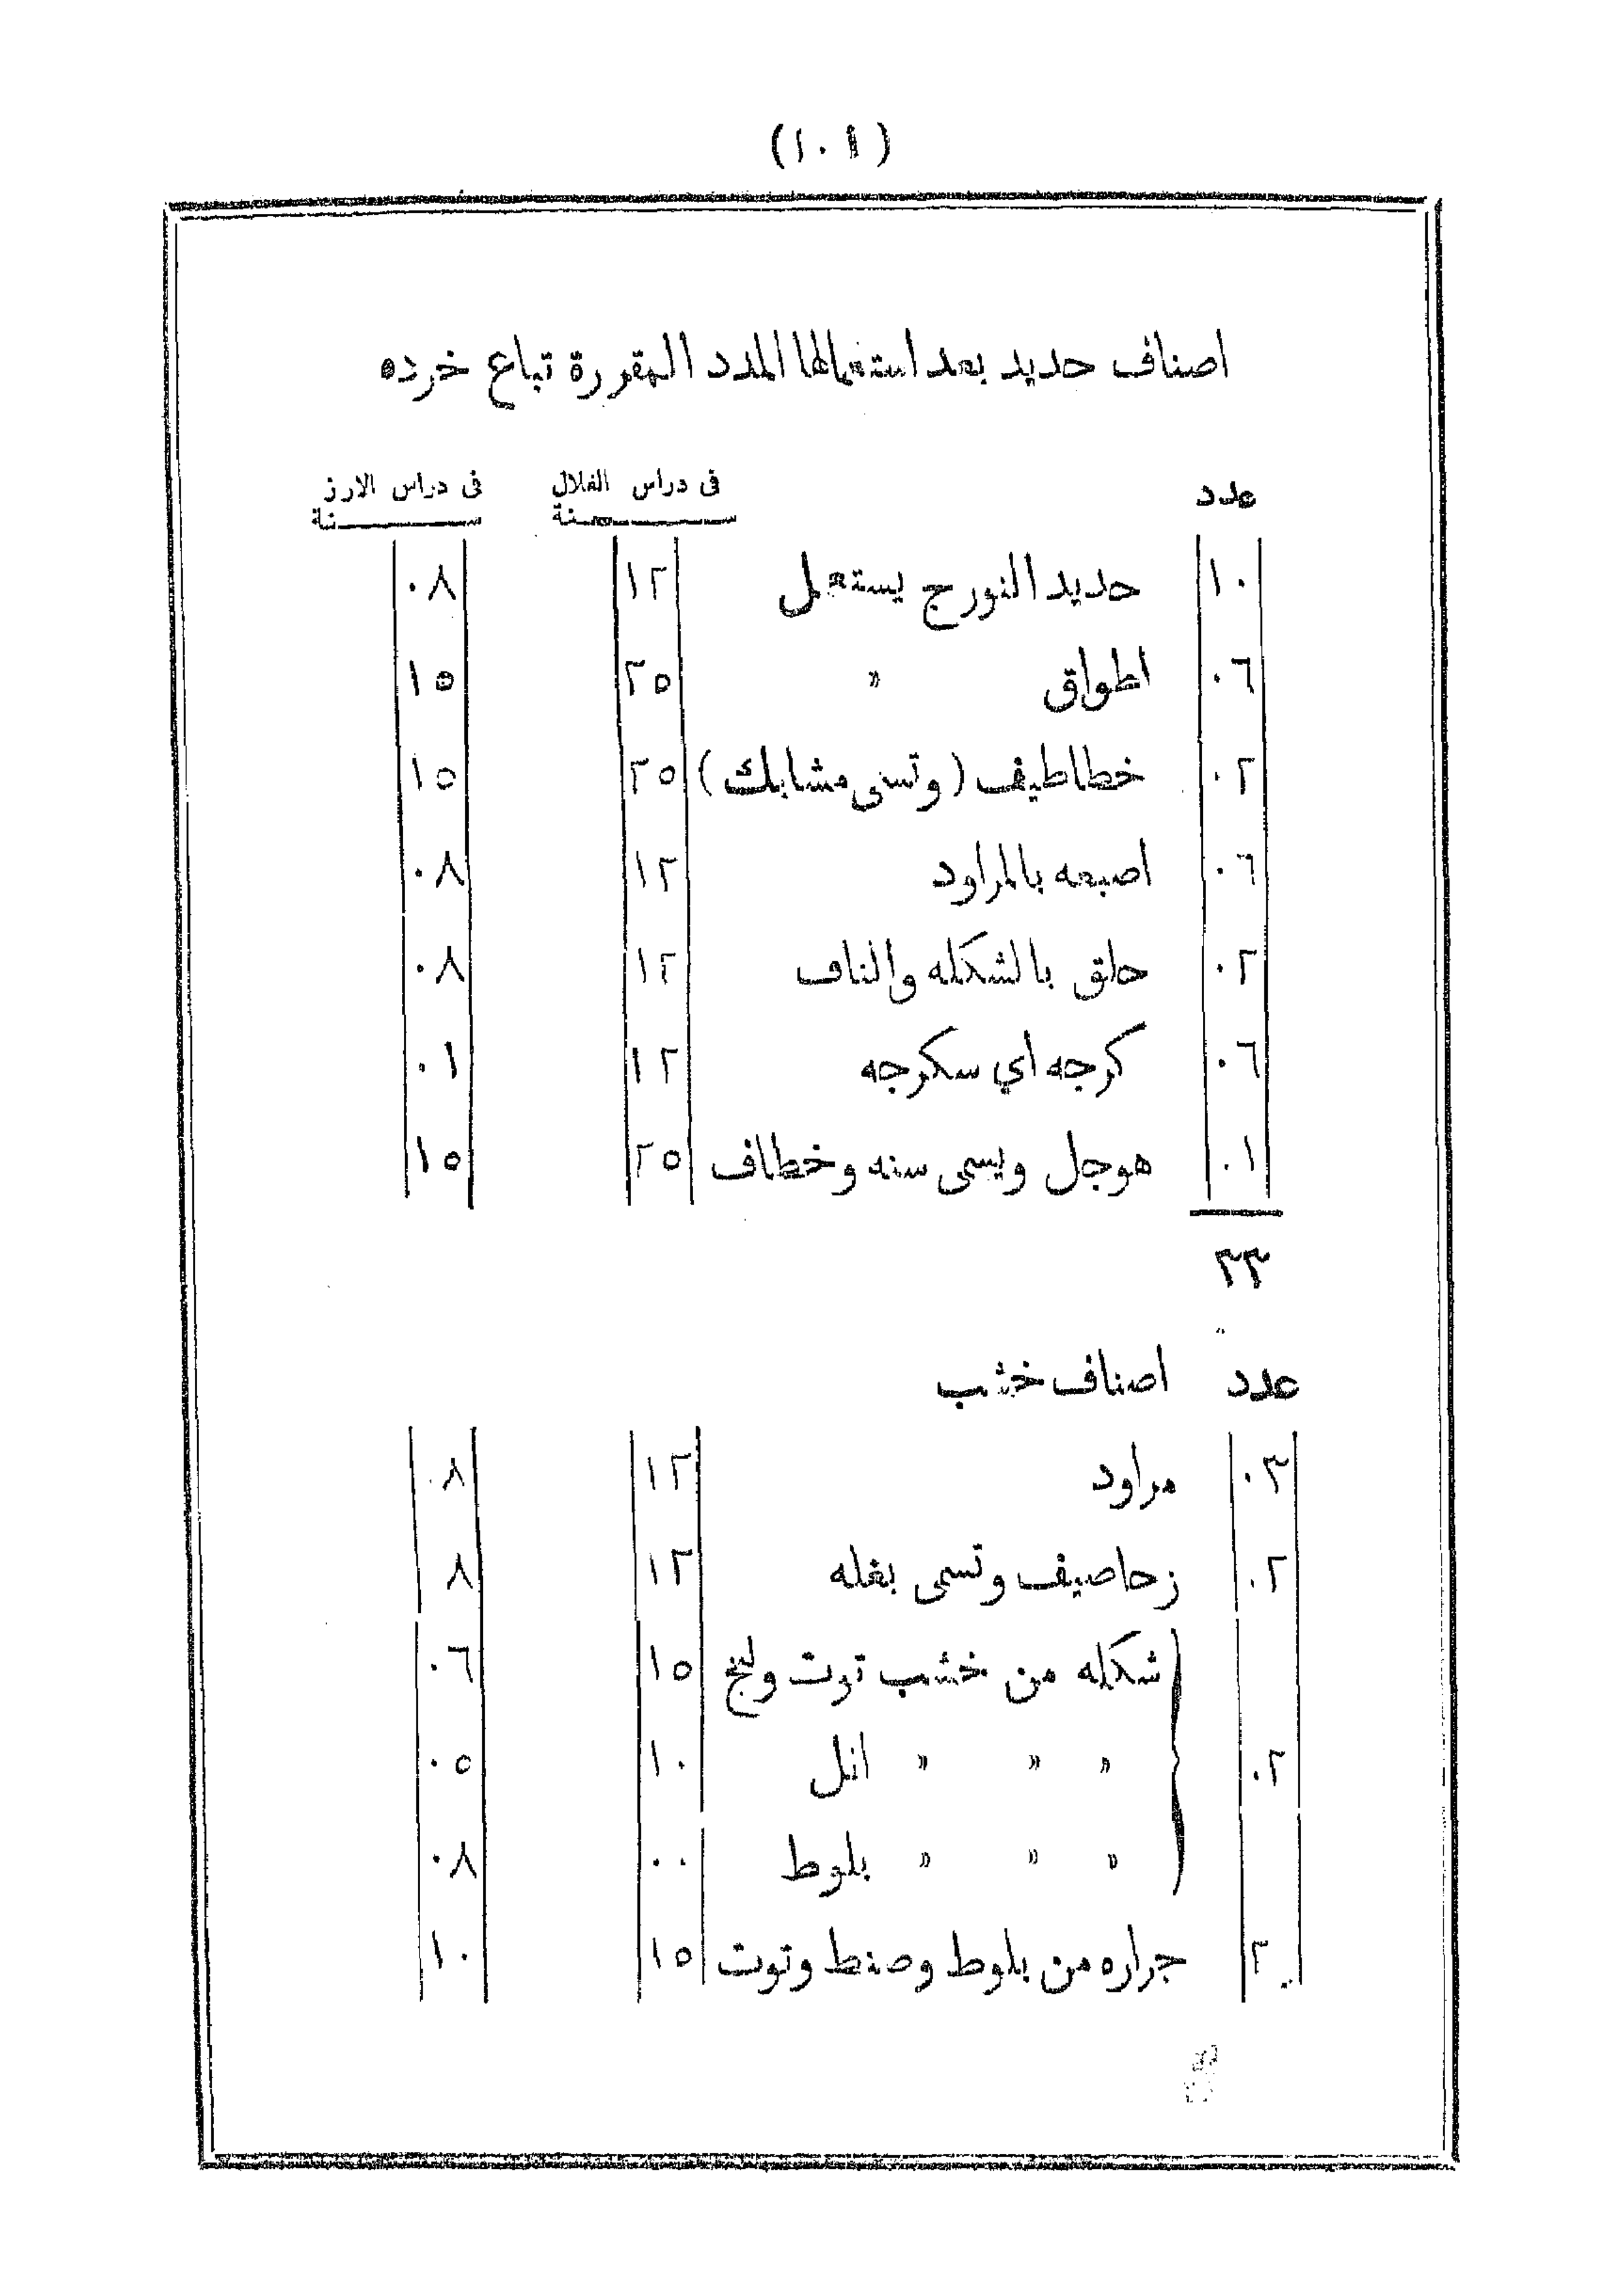 (١٠١)
اصناف حديد بعد استعمالها المدد المقررة تباع خرده
عدد فى دراس الغلال فى دراس الارز
سنة سنة
١٠ حديد النورج يستعمل ١٢ ٠٨
٠٦ اطواق » ٢٥ ١٥
٠٢ خطاطيف (وتسمى مشابك) ٢٥ ١٥
٠٦ اصبعه بالمراود ١٢ ٠٨
٠٢ حلق بالشكله والناف ١٢ ٠٨
٠٦ كرجه اي سكرجه ١٢ ٠١
٠١ هوجل ويسمى سنه وخطاف ٢٥ ١٥
٣٣
عدد اصناف خشب
٠٣ مراود ١٢ ٠٨
٠٢ زحاصيف وتسمى بغله ١٢ ٨
شكله من خشب توت ولبخ ١٥ ٠٦
٠٢ » » » اثل ١٠ ٠٥
» » » بلوط ٠٠ ٠٨
٠٢ جراره من بلوط وصنط وتوت ١٥ ١٠